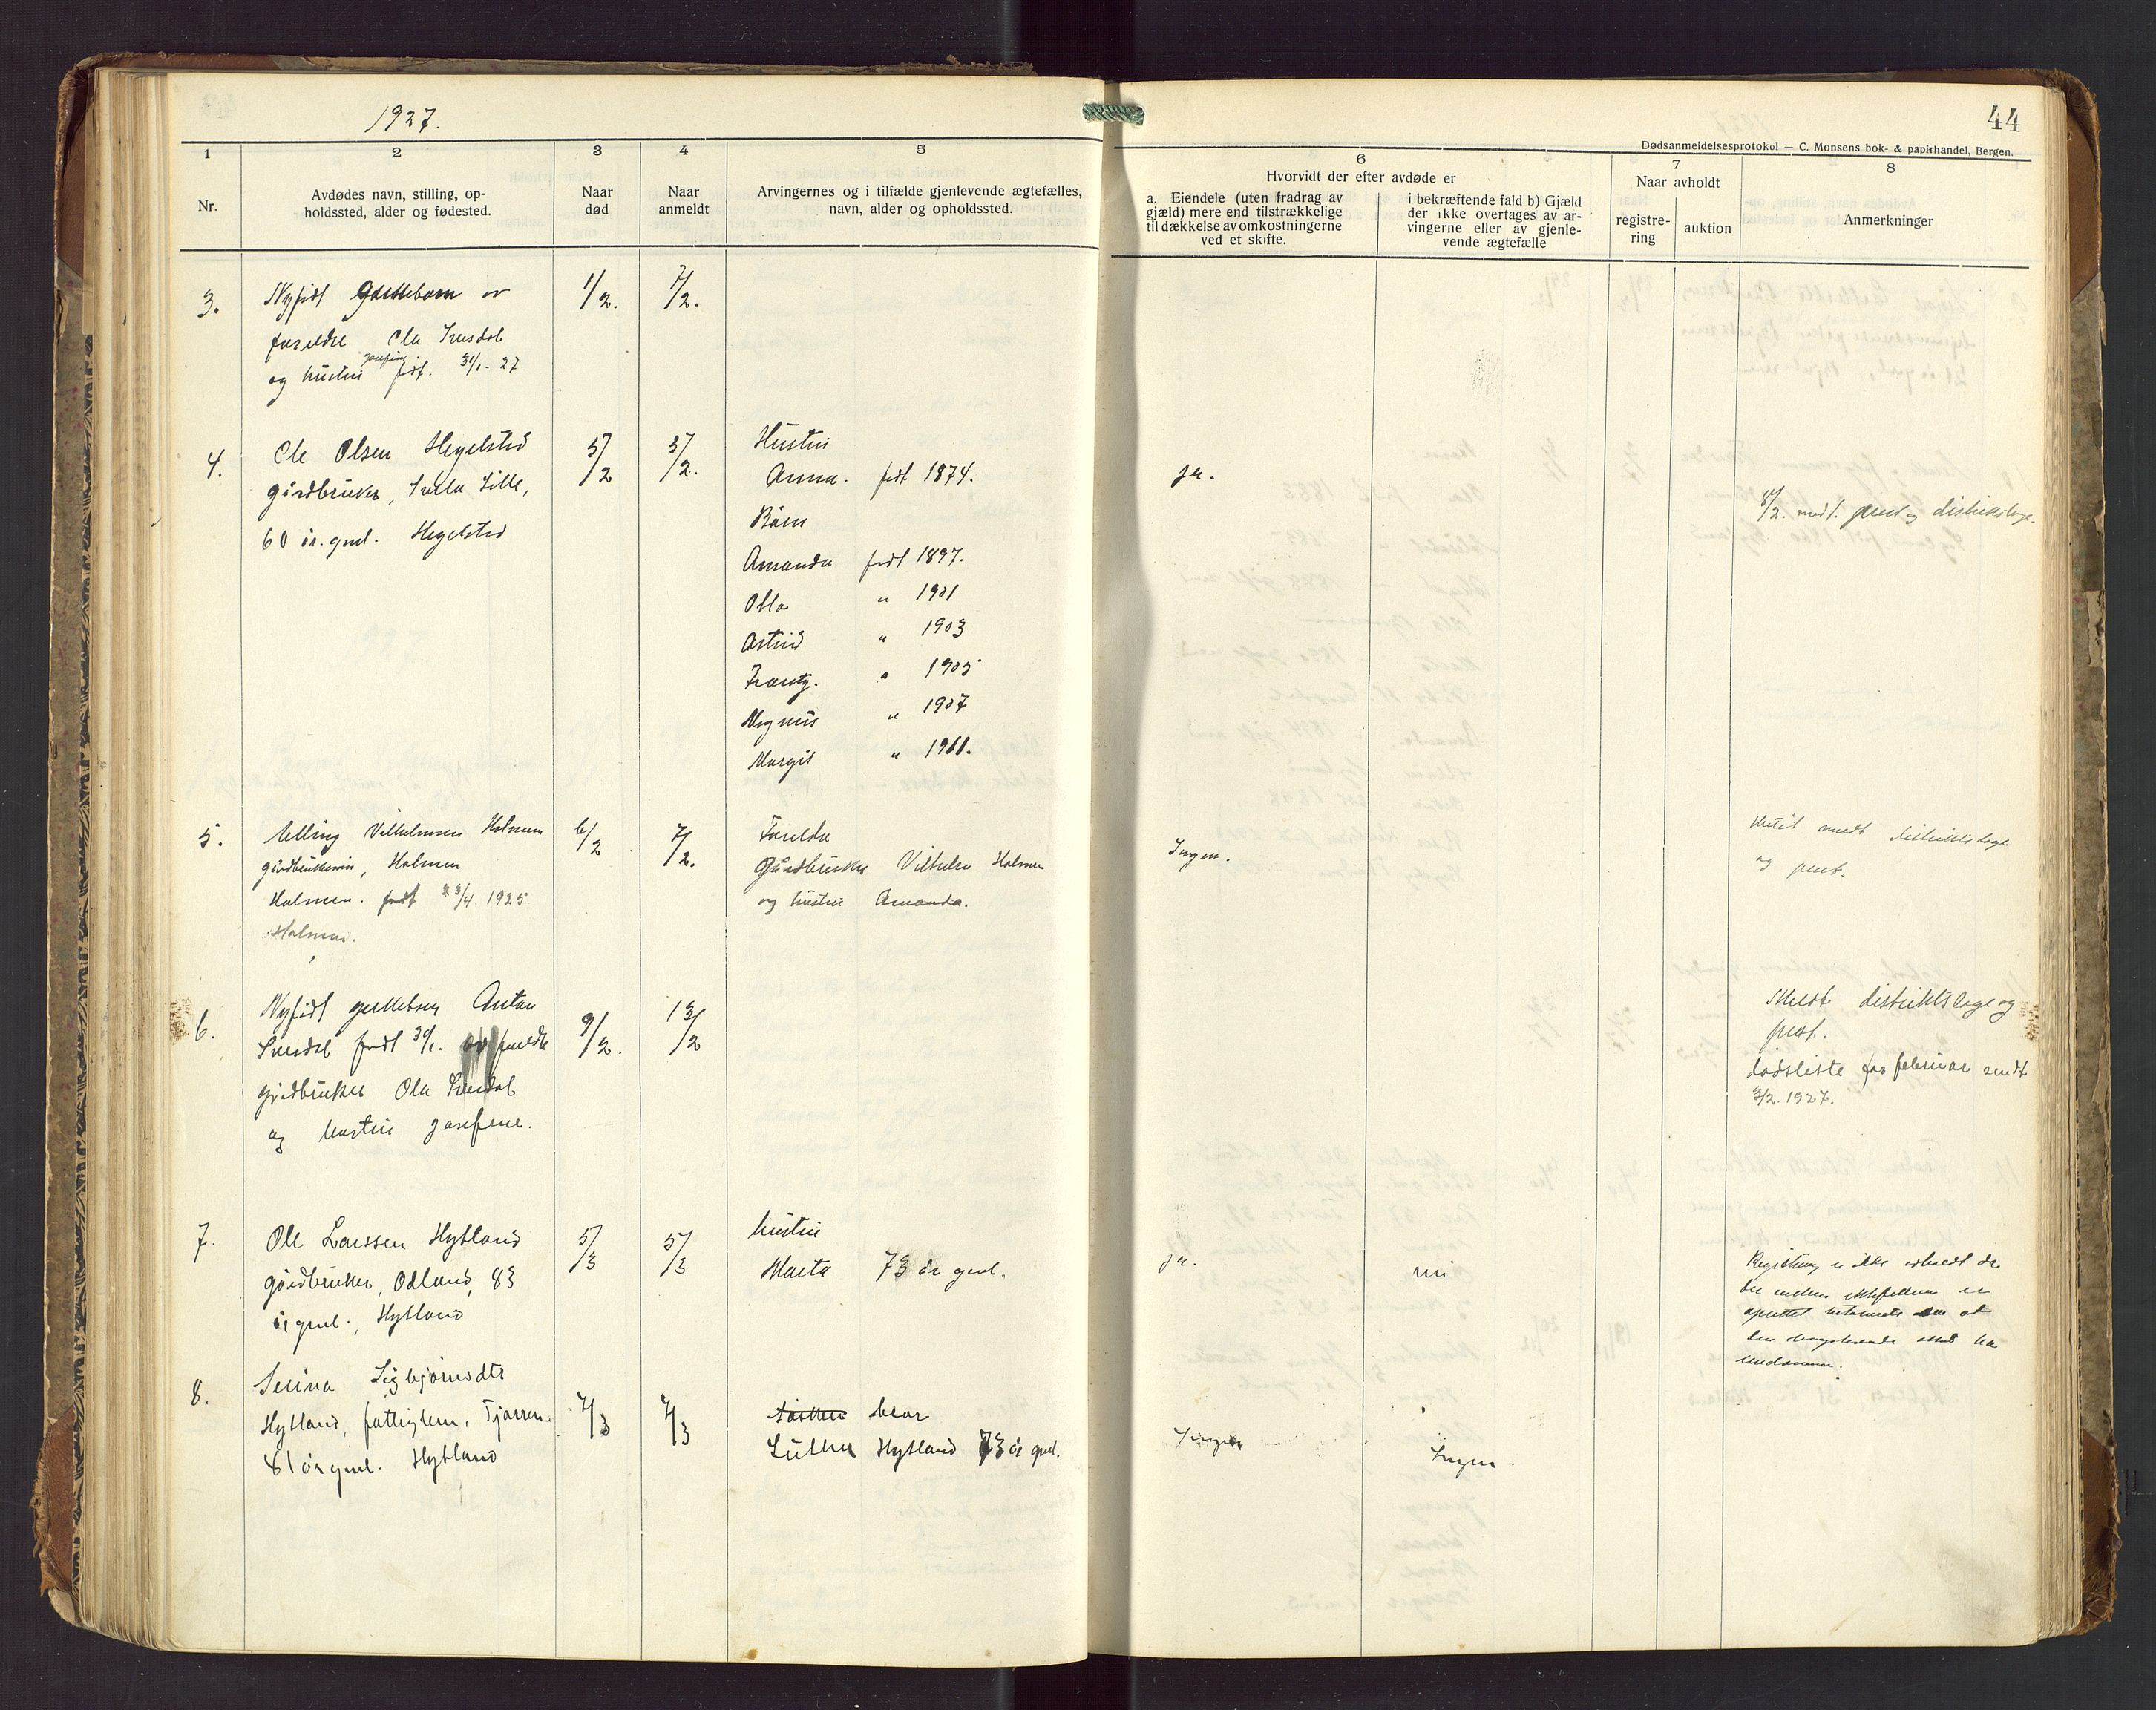 1927.
44
Dødsanmeldelsesprotokol — C. Monsens bok- & papirhandel, Bergen.
1
2
3
4
5
6
7
8
Nr.
Avdødes navn, stilling, op-
holdssted, alder og fødested.
Naar
død
Naar
anmeldt
Arvingernes og i tilfælde gjenlevende ægtefælles,
navn, alder og opholdssted.
Hvorvidt der efter avdøde er
a. Eiendele (uten fradrag av
gjæld) mere end tilstrækkelige
til dækkelse av omkostningerne
ved et skifte.
i bekræftende fald b) Gjæld
der ikke overtages av ar-
vingerne eller av gjenle-
vende ægtefælle
Naar avholdt
registre-
ring
auktion
Anmerkninger
3.
Nyfødt guttebarn av
foreldre Ola
og hustru født. 31/1 - 27
1/2.
7/2.
4.
Ole Olsen Hegelstad
gårdbruker, Lille,
60 år. gml. Hegelstad
5/2
5/2.
Hustru
Anna. født 1874.
Børn
Amanda født 1897.
Otto " 1901
Astrid " 1903
" 1905
Magnus " 1907
Margit " 1911.
ja.
8/2. medt. prest og distriktslege.
5.
Elling Vilhelmsen Holmen
Holmen
Holmen. født 23/4. 1925
Holmen.
6/2
7/2.
Foreldre
Gårdbruker Vilhelm Holmen
og hustru Amanda.
Ingen.
distriktslege
og prest.
6.
Nyfødt guttebarn Anton
født 30/1. av foreldre
gårdbruker Ola
og hustru Josefine.
9/2.
13/2
Meldt distriktslege og
prest.
dødsliste for februar sendt
3/2. 1927.
7.
Ole Larssen Hytland
gårdbruker, Odland, 83
år gml., Hytland
5/3
5/3
hustru
Marta 73 år gml.
ja.
nei
Registrering er ikke avholdt da
det mellem ektefellene er
oprettet testamente om at
den lengstlevende skal ha
8.
Serina Sigbjørnsdtr
Hytland, fattiglem, Tjørren.
81 år gml. Hytland
7/3
7/3
bror
Hytland 73 år gml.
Ingen
Ingen.